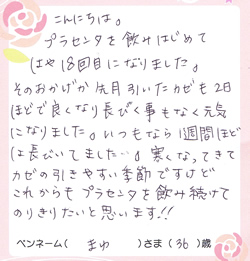 こんにちは。
プラセンタを飲みはじめて
はや18回目になりました。
そのおかげか先月引いたカゼも2日
ほどで良くなり長びく事もなく元気
になりました。いつもなら1週間ほど
は長びいてました…。寒くなってきて
カゼの引きやすい季節ですけど
これからもプラセンタを飲み続けて
のりきりたいと思います!!
ペンネーム( まゆ )さま(36)歳